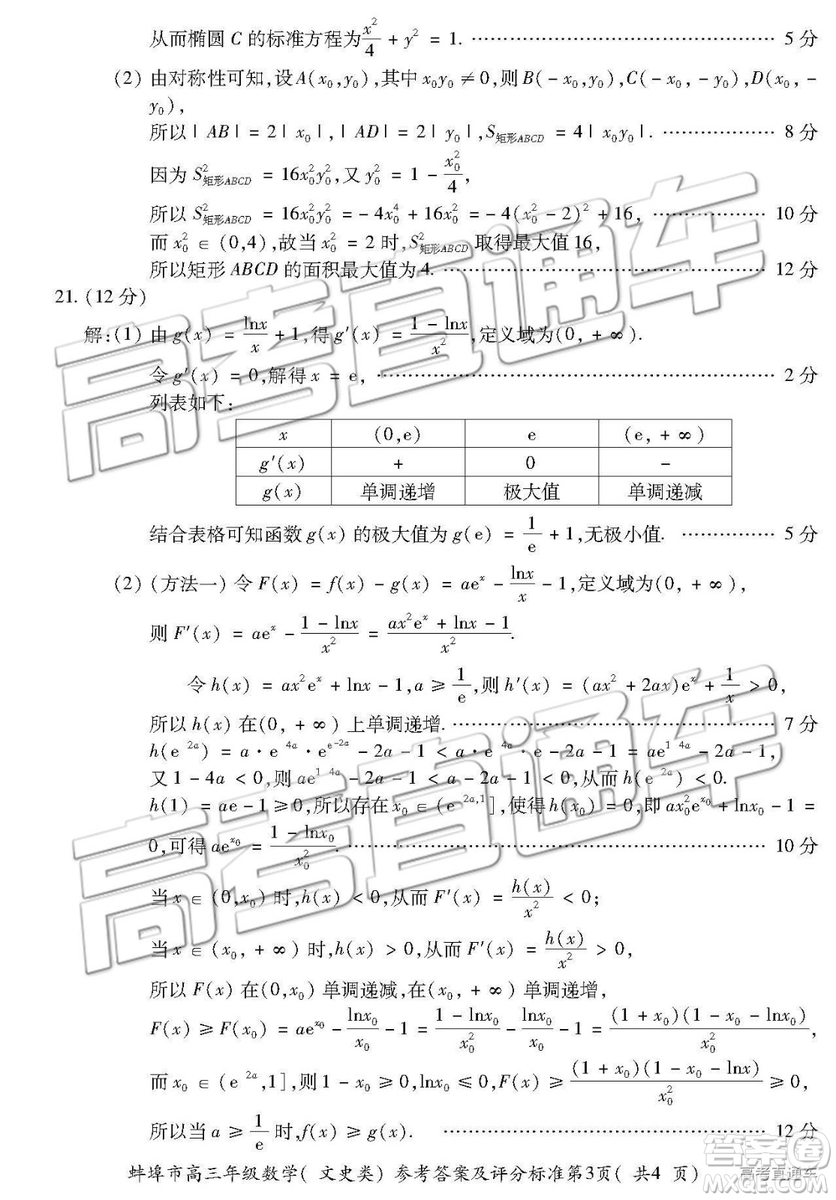 从而椭圆 C 的标准方程为x²/4 + y² = 1. ………… 5 分
(2) 由对称性可知,设A(x₀,y₀),其中x₀y₀ ≠ 0,则 B(- x₀,y₀),C(- x₀, - y₀),D(x₀, -
y₀),
所以 | AB | = 2 | x₀ |, | AD | = 2 | y₀ |,S矩形ABCD = 4 | x₀y₀ |. ………… 8 分
因为 S²矩形ABCD = 16x₀²y₀²,又 y₀² = 1 - x₀²/4,
所以 S²矩形ABCD = 16x₀²y₀² = - 4x₀⁴ + 16x₀² = - 4(x₀² - 2)² + 16, ………… 10 分
而 x₀² ∈ (0,4),故当 x₀² = 2 时,S²矩形ABCD 取得最大值 16,
所以矩形 ABCD 的面积最大值为 4. ………… 12 分
21. (12 分)
解:(1) 由 g(x) = lnx/x + 1,得 g′(x) = (1 - lnx)/x²,定义域为(0, + ∞).
令 g′(x) = 0,解得 x = e, ………… 2 分
列表如下:
x (0,e) e (e, + ∞)
g′(x) + 0 -
g(x) 单调递增 极大值 单调递减
结合表格可知函数 g(x) 的极大值为 g(e) = 1/e + 1,无极小值. ………… 5 分
(2) (方法一) 令 F(x) = f(x) - g(x) = aeˣ - lnx/x - 1,定义域为(0, + ∞),
则 F′(x) = aeˣ - (1 - lnx)/x² = (ax²eˣ + lnx - 1)/x².
令 h(x) = ax²eˣ + lnx - 1,a ≥ 1/e,则 h′(x) = (ax² + 2ax)eˣ + 1/x > 0,
所以 h(x) 在(0, + ∞) 上单调递增. ………… 7 分
h(e ²ᵃ) = a · e ⁴ᵃ · e^(e^(-2a)) - 2a - 1 < a · e ⁴ᵃ · e - 2a - 1 = ae¹ ⁴ᵃ - 2a - 1,
又 1 - 4a < 0,则 ae¹ ⁴ᵃ - 2a - 1 < a - 2a - 1 < 0,从而 h(e ²ᵃ) < 0.
h(1) = ae - 1 ≥ 0,所以存在 x₀ ∈ (e ^(2a,1)],使得 h(x₀) = 0,即 ax₀²e^(x₀) + lnx₀ - 1 =
0,可得 ae^(x₀) = (1 - lnx₀)/x₀². ………… 10 分
当 x ∈ (0,x₀) 时,h(x) < 0,从而 F′(x) = h(x)/x² < 0;
当 x ∈ (x₀, + ∞) 时,h(x) > 0,从而 F′(x) = h(x)/x² > 0,
所以 F(x) 在(0,x₀) 单调递减,在(x₀, + ∞) 单调递增,
F(x) ≥ F(x₀) = ae^(x₀) - lnx₀/x₀ - 1 = (1 - lnx₀)/x₀² - lnx₀/x₀ - 1 = (1 + x₀)(1 - x₀ - lnx₀)/x₀²,
而 x₀ ∈ (e ²ᵃ,1],则 1 - x₀ ≥ 0,lnx₀ ≤ 0,F(x) ≥ (1 + x₀)(1 - x₀ - lnx)/x₀² ≥ 0,
所以当 a ≥ 1/e 时,f(x) ≥ g(x). ………… 12 分
蚌埠市高三年级数学( 文史类) 参考答案及评分标准第3页( 共4 页)
高考直通车
高考直通车
高考直通车